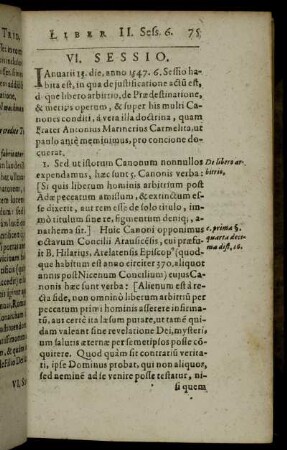 LIBER II. Sess. 6. 75
VI. SESSIO.
IAnuarii 13. die, anno 1547. 6. Sessio ha-
bita est, in qua de justificatione actū est,
de que libero arbitrio, de Prædestinatione,
& meritis operum, & super his multi Ca-
nones conditi, à vera illa doctrina, quam
Frater Antonius Marinerius Carmelita, ut
paulo antè meminimus, pro concione do-
cuerat.
1. Sed ut istorum Canonum nonnullos
expendamus, hæc sunt 5. Canonis verba:
[Si quis liberum hominis arbitrium post
Adæ peccatum amissum, & extinctum es-
se dixerit, aut rem esse de solo titulo, im-
mò titulum sine re, figmentum deniq;, a-
nathema sit.] Huic Canoni opponimus
octavum Concilii Arausicēsis, cui præfu-
it B. Hilarius, Arelatensis Episcopꝰ (quod-
que habitum est anno circiter 370. aliquot
annis post Nicenum Concilium) cujus Ca-
nonis hæc sunt verba: [Alienum est à re-
cta fide, non omninò liberum arbitrium per
peccatum primi hominis asserere infirma-
tū, aut certè ita læsum putare, ut tamē qui-
dam valeant sine revelatione Dei, mysteri-
um salutis æternæ per semetipsos posse cō-
quirere. Quod quàm sit contrariū verita-
ti, ipse Dominus probat, qui non aliquos,
sed neminē ad se venire posse testatur, ni-
si quem
De libero ar-
bitrio.
c. prima §.
quarta deci-
ma dist. 16.